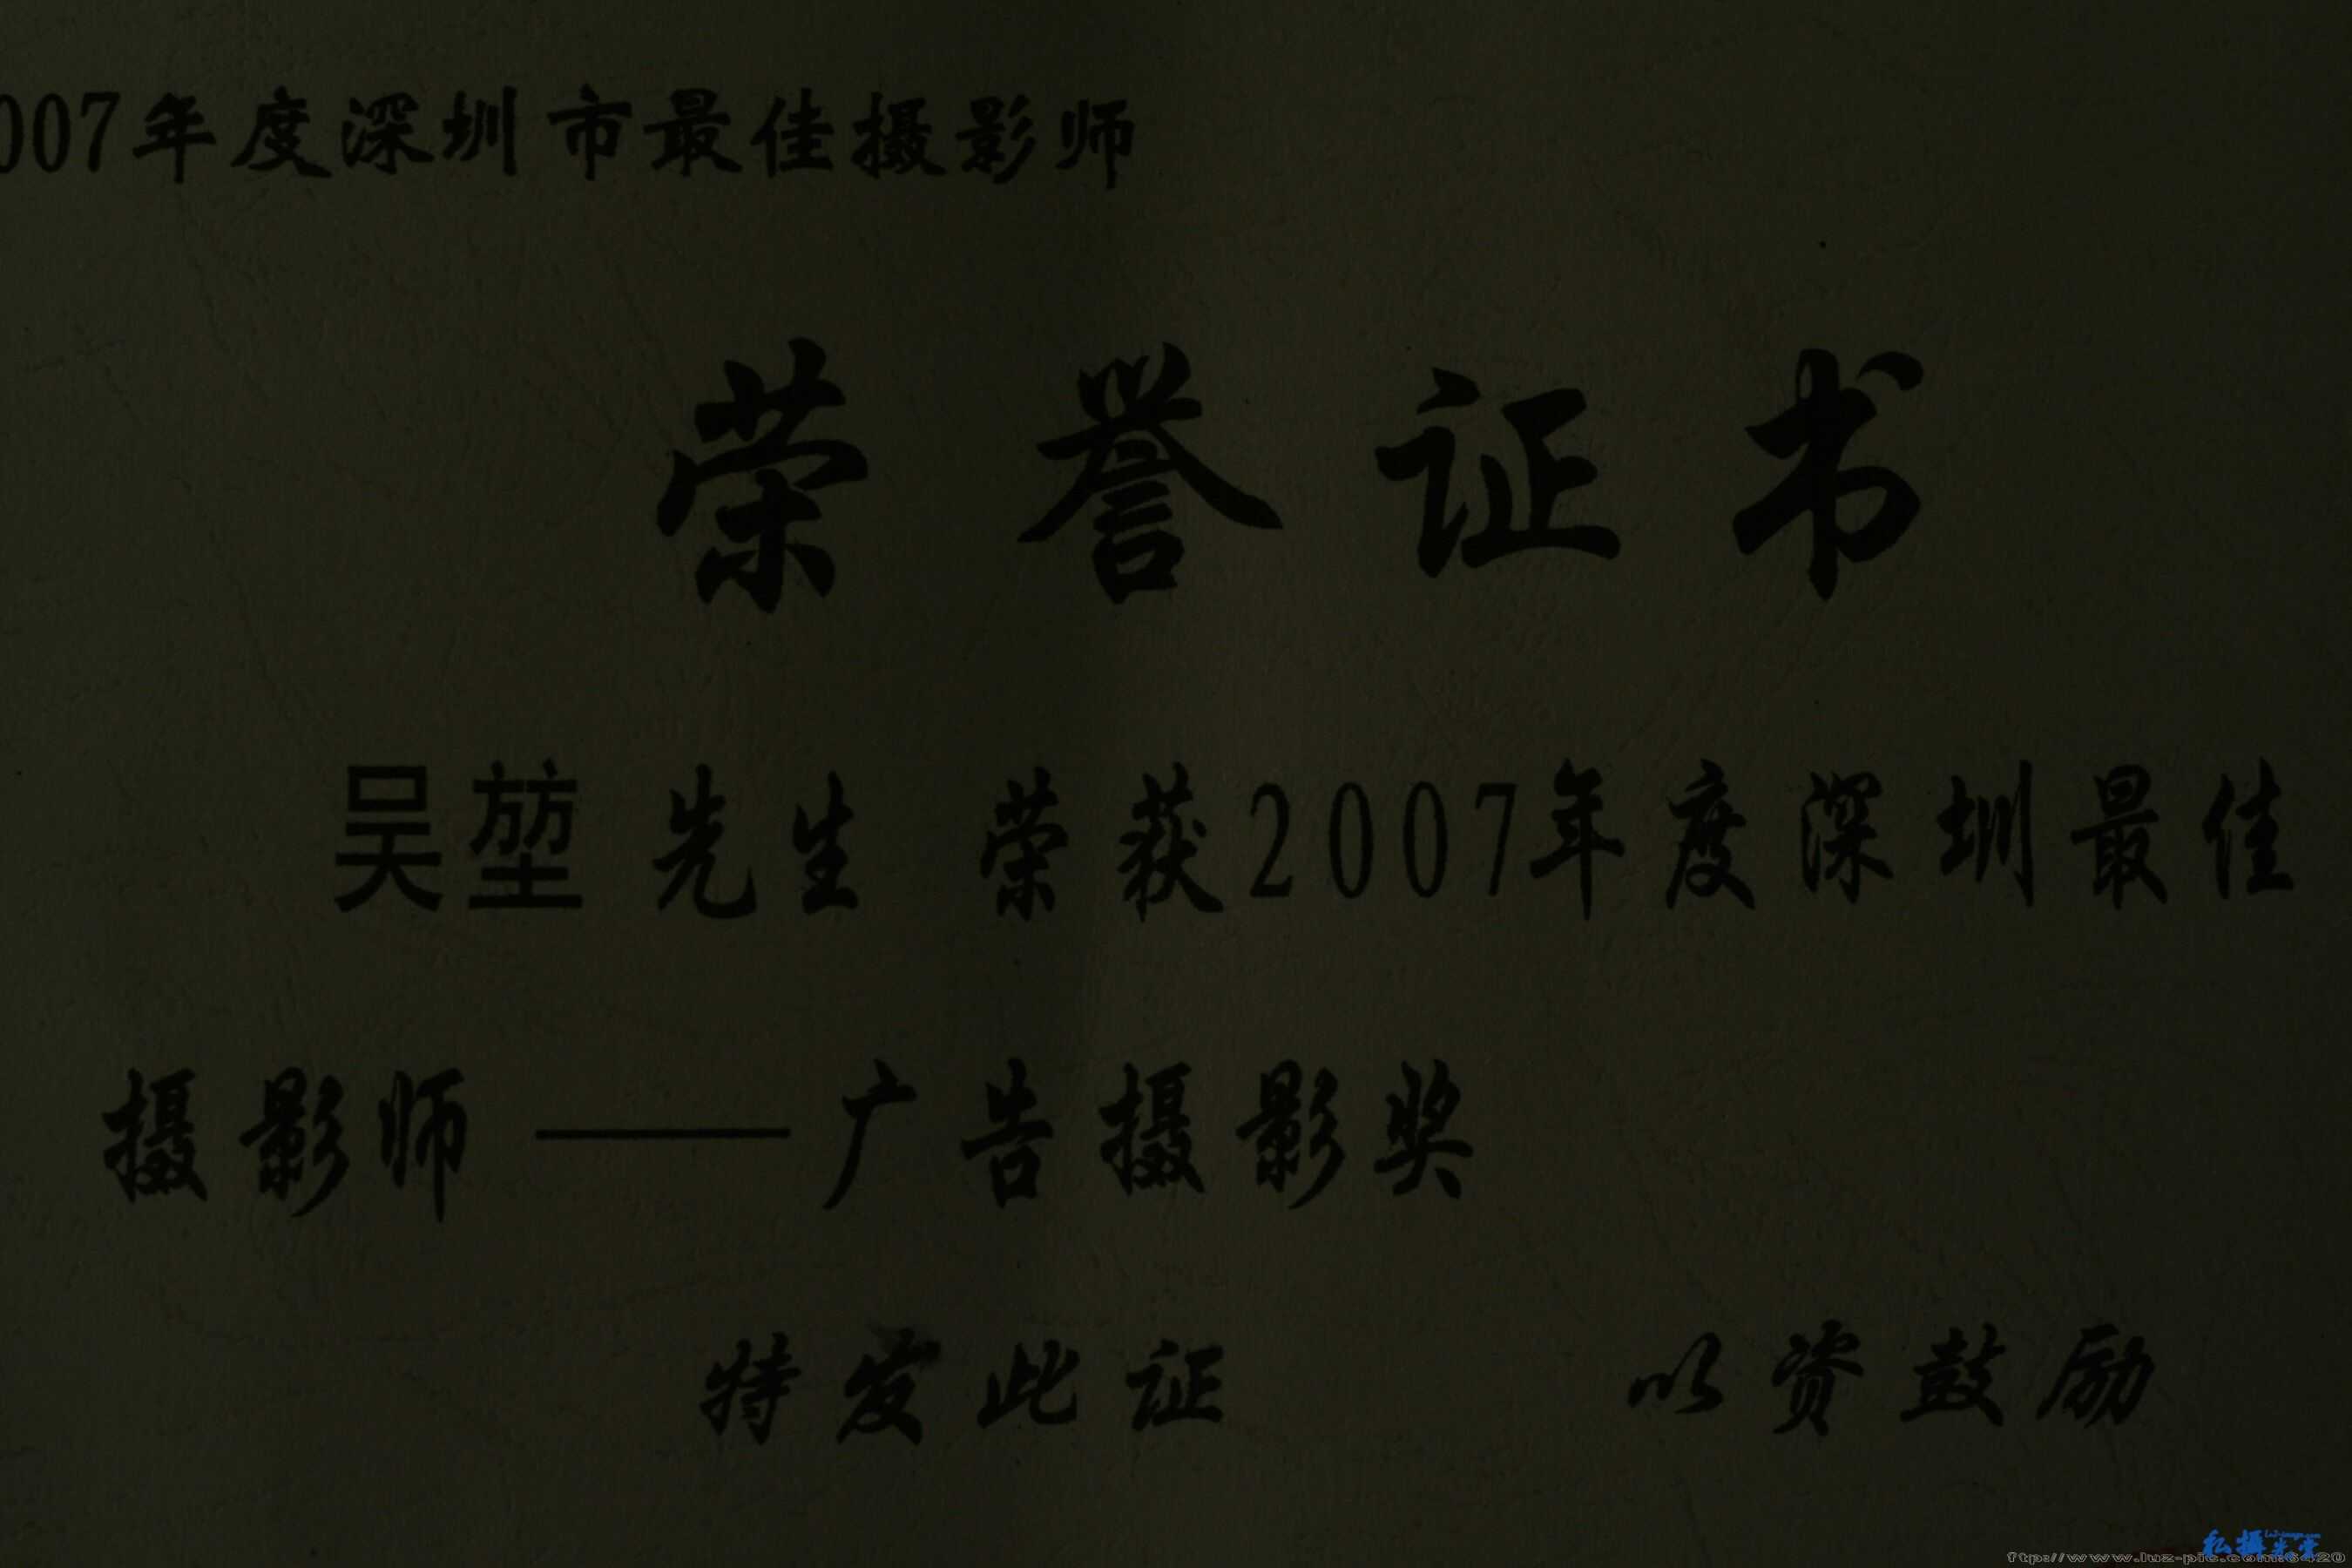 007年度深圳市最佳摄影师
荣誉证书
吴堃先生 荣获2007年度深圳最佳
摄影师——广告摄影奖
特发此证 以资鼓励